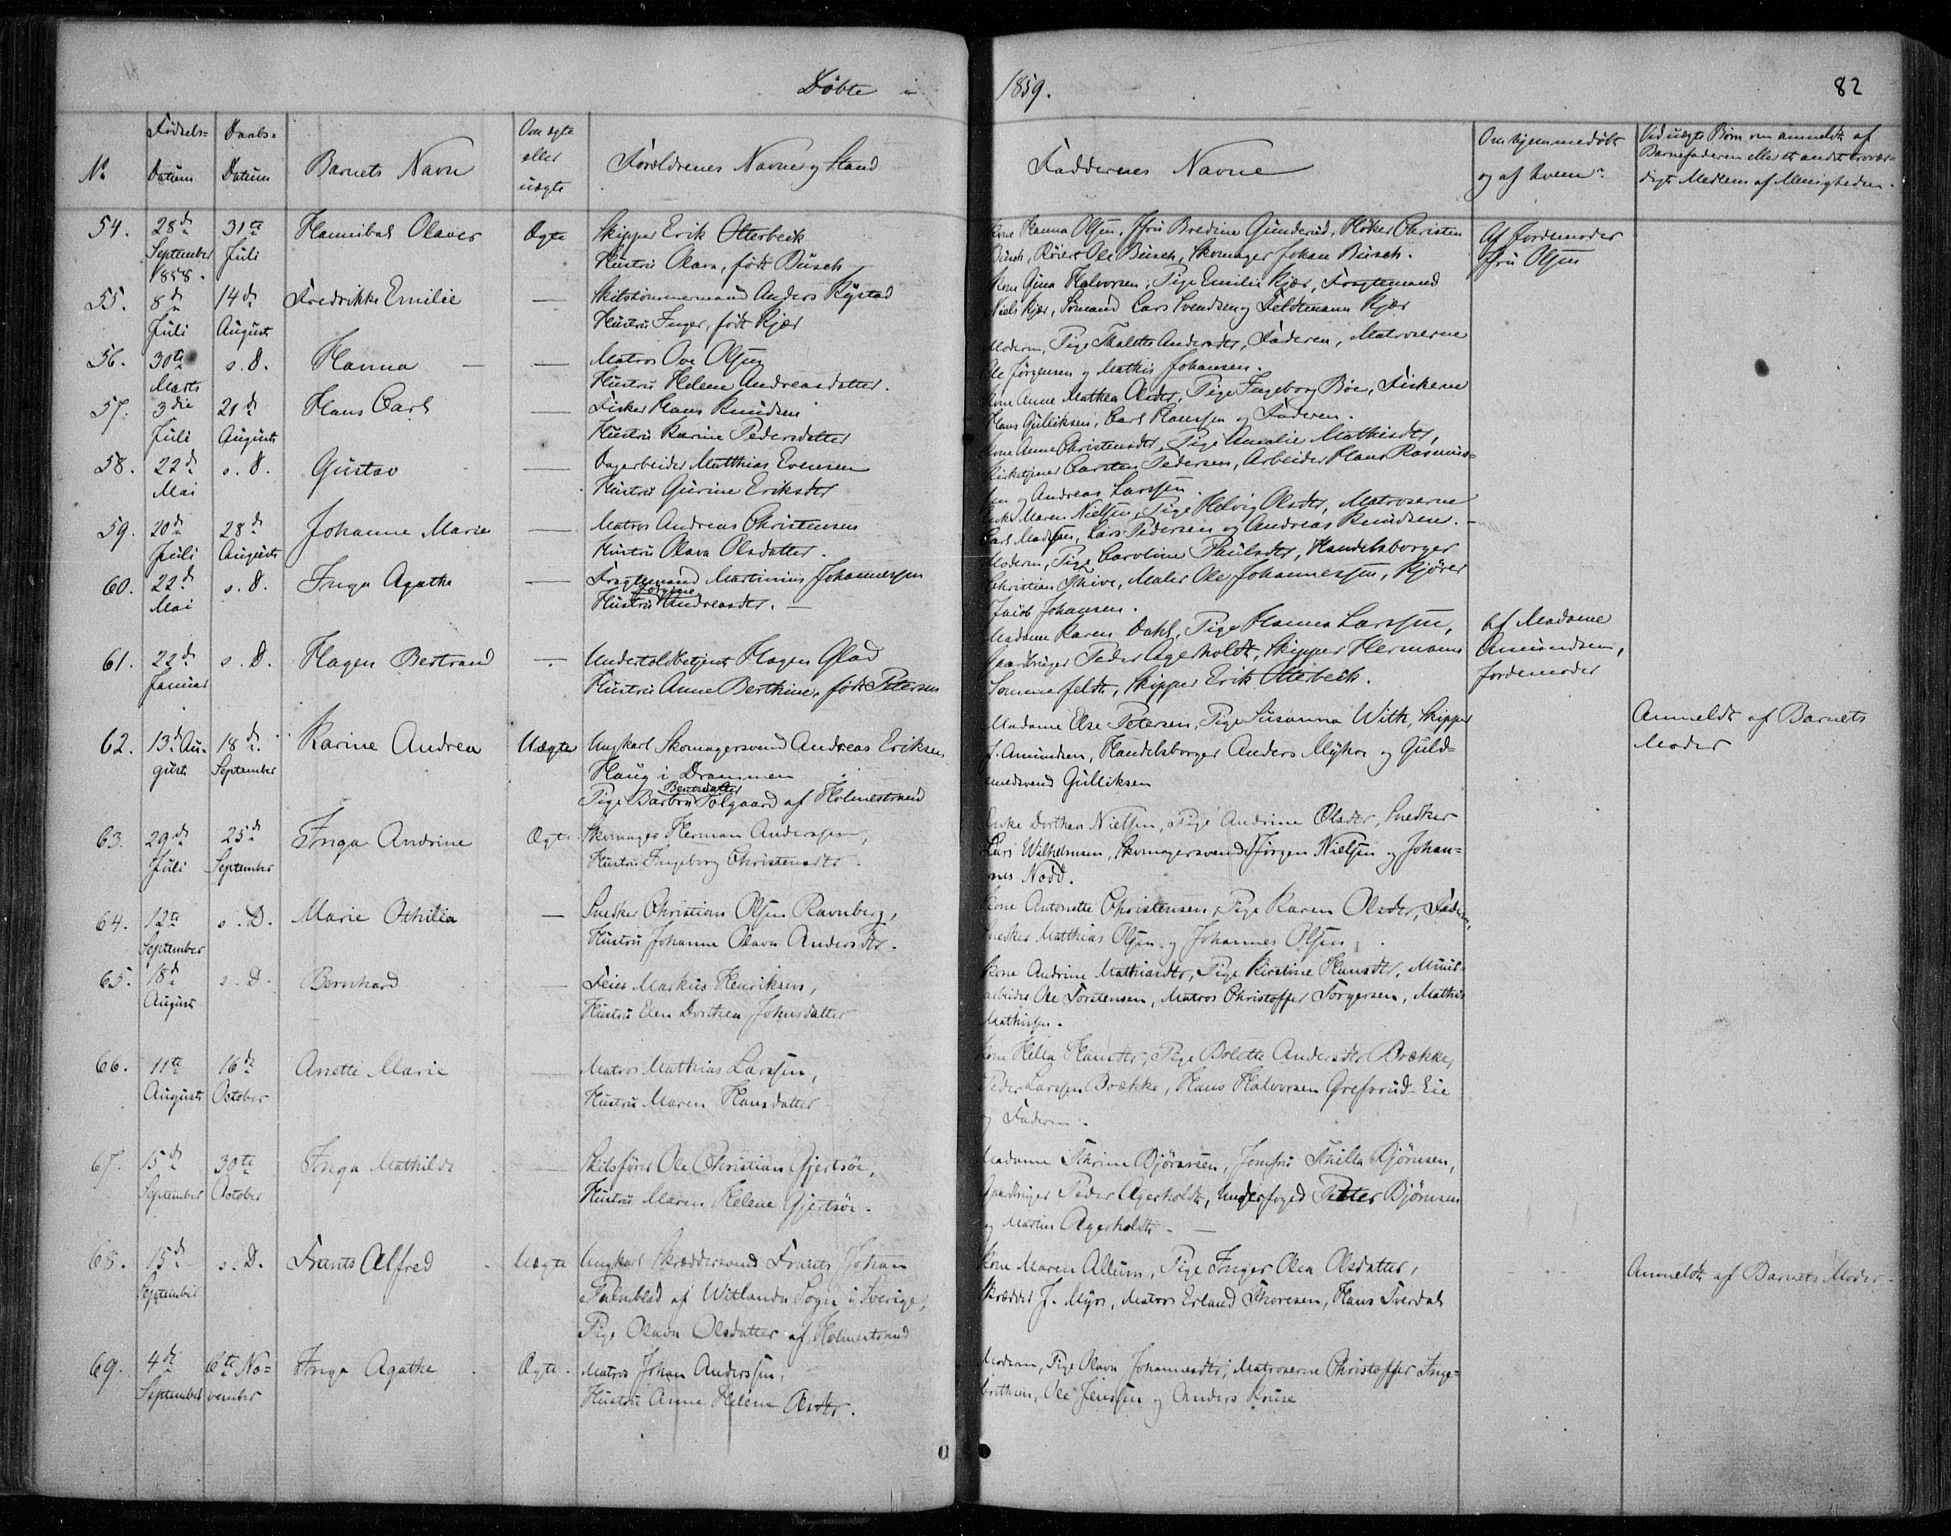 Døbte i 1859.
82
No
Fødsels-
Datum
Daabs-
Datum
Barnets Navn
Om ægte
eller
uægte
Forældrenes Navne og Stand
Faddernes Navne
Om hjemmedøbt
og af hvem?
Ved uægte Børn om anmeldt af
Barnefaderen eller et andet trovær-
digt Medlem af Menigheden.
54.
28de
September
1858.
31te
Juli
Hannibal Olaves
Ægte
Skipper Erik Otterbeck
Hustru Olava, født Busch
Kone Hanna Olsen, Fru Bredine Gunderud, Høker Christen
Busch, Ole Busch, Skomager Johan Busch.
Af Jordemoder
Fru Olsen
55.
8de
Juli
14de
August
Fredrikke Emilie
—
Skibstømmermand Anders Rystad
Hustru Inger, født Kjær
Kone Gina Halvorsen, Pige Emilie Kjær, Fragtemand
Niels Kjær, Sømand Lars Svendsen og Feldtmann Kjær
56.
30te
Marts
s. D.
Hanna
—
Matros Ove Olsen
Hustru Helene Andreasdatter.
Moderen, Pige Thalette Andersdtr, Faderen, Matroserne
Ole Jørgensen og Mathis Johansen.
57.
3die
Juli
21de
August
Hans Carl
—
Fisker Hans Knudsen
Hustru Karine Pedersdatter
Kone Anne Mathea Olsdtr, Pige Ingeborg Bøe, Fiskerne
Hans Gulliksen, Carl Hansen og Faderen.
58.
22de
Mai
s. D.
Gustav
—
Dagarbeider Matthias Evensen
Hustru Gurine Eriksdtr
Kone Anne Christensdtr, Pige Amalie Mathisdtr,
Kirketjener Carsten Pedersen, Arbeider Hans Rasmus-
sen og Andreas Larssen.
59.
20de
Juli
28de
August
Johanne Marie
—
Matros Andreas Christensen
Hustru Olava Olsdatter.
Enke Maren Nielsen, Pige Helvig Olsdtr, Matroserne
Carl Madsen, Lars Pedersen og Andreas Knudsen.
60.
22de
Mai
s. D.
Inga Agathe
—
Fragtemand Martinius Johannessen
Hustru Jørgine Andreasdtr. —
Moderen, Pige Caroline Paulsdtr, Handelsborger
Christian Skive, Maler Ole Johannessen, Kjører
Jacob Johansen.
61.
22de
Januar
s. D.
Hagen Bertrand
—
Undertoldbetjent Hagen Glad
Hustru Anne Berthine, født Petersen
Madame Karen Dahl, Pige Hanna Larssen,
Gaardbruger Peder Agerholdt, Skipper Hermann
Sommerfeldt, Skipper Erik Otterbeck.
Af Madame
Amundsen,
Jordemoder
62.
13de Au-
gust
18de
September
Karine Andrea
Uægte
Ungkarl Skomagersvend Andreas Eriksen
Haug i Drammen
Pige Barbro Berntsdatter Solgaard af Holmestrand
Madame Else Petersen, Pige Susanna With, Skipper
J. Amundsen, Handelsborger Anders Myhre og Guld-
smedsvend Gulliksen
Anmeldt af Barnets
Moder
63.
29de
Juli
25de
September
Inga Andrine
Ægte
Skomager Herman Anderssen,
Hustru Ingeborg Christensdtr
Enke Dorthea Nielsen, Pige Andrine Olsdtr, Snedker
Lars Wilhelmsen, Skomagersvend Jørgen Nielsen og Johan-
nes Nodd.
64.
12te
September
s. D.
Marie Othilia
—
Snedker Christian Olsen Ravnberg,
Hustru Johanne Olava Andersdtr.
Kone Antonette Christensen, Pige Karen Olsdtr, Faderen,
Snedker Matthias Olsen og Johannes Olsen.
65.
18de
August
s. D.
Bernhard
—
Feier Markus Henriksen,
Hustru Elen Dorthea Johnsdatter
Kone Andrine Mathiasdtr, Pige Kirstine Hansdtr, Muur-
arbeider Ole Torstensen, Matros Christoffer Torgersen, Mathis
Mathissen.
66.
11te
August
16de
October
Anette Marie
—
Matros Mathias Larssen,
Hustru Maren Hansdatter
Kone Helia Hansdtr, Pige Bolette Andersdtr Brække,
Peder Larssen Brække, Hans Halvorsen Greforud-Eie
og Faderen.
67.
15de
September
30te
October
Inga Mathilde
—
Skibsfører Ole Christian Gjertsøe,
Hustru Maren Helene Gjertsøe.
Madame Thrine Bjørnsen, Jomfru Thilla Bjørnsen,
Gaardbruger Peder Agerholdt, Underfoged Petter Bjørnsen
og Martin Agerholdt. —
68.
15de
September
s. D.
Frants Alfred
Uægte
Ungkarl Skræddersvend Frants Johan
Palmblad af Witlanda Sogn i Sverige,
Pige Olava Olsdatter af Holmestrand
Kone Maren Allum, Pige Inger Olea Olsdatter,
Skrædder J. Myre, Matros Erland Thoresen, Hans Tverdal
Anmeldt af Barnets Moder.
69.
4de
September
6te No-
vember
Inga Agathe
Ægte.
Matros Johan Anderssen,
Hustru Anne Helene Olsdtr.
Moderen, Pige Olava Johannesdtr, Matroserne Christoffer Inge-
brethsen, Ole Jenssen og Anders Kruse